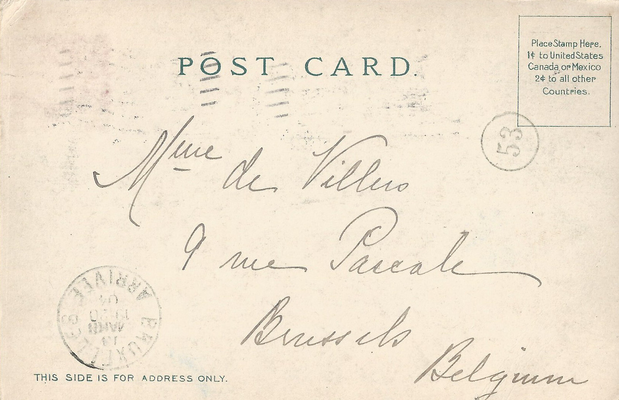 POST CARD.
Place Stamp Here.
1¢ to United States
Canada or Mexico
2¢ to all other
Countries.
53
Mme de Villers
9 rue Pascale
Brussels
Belgium
BRUXELLES
ARRIVEE
THIS SIDE IS FOR ADDRESS ONLY.